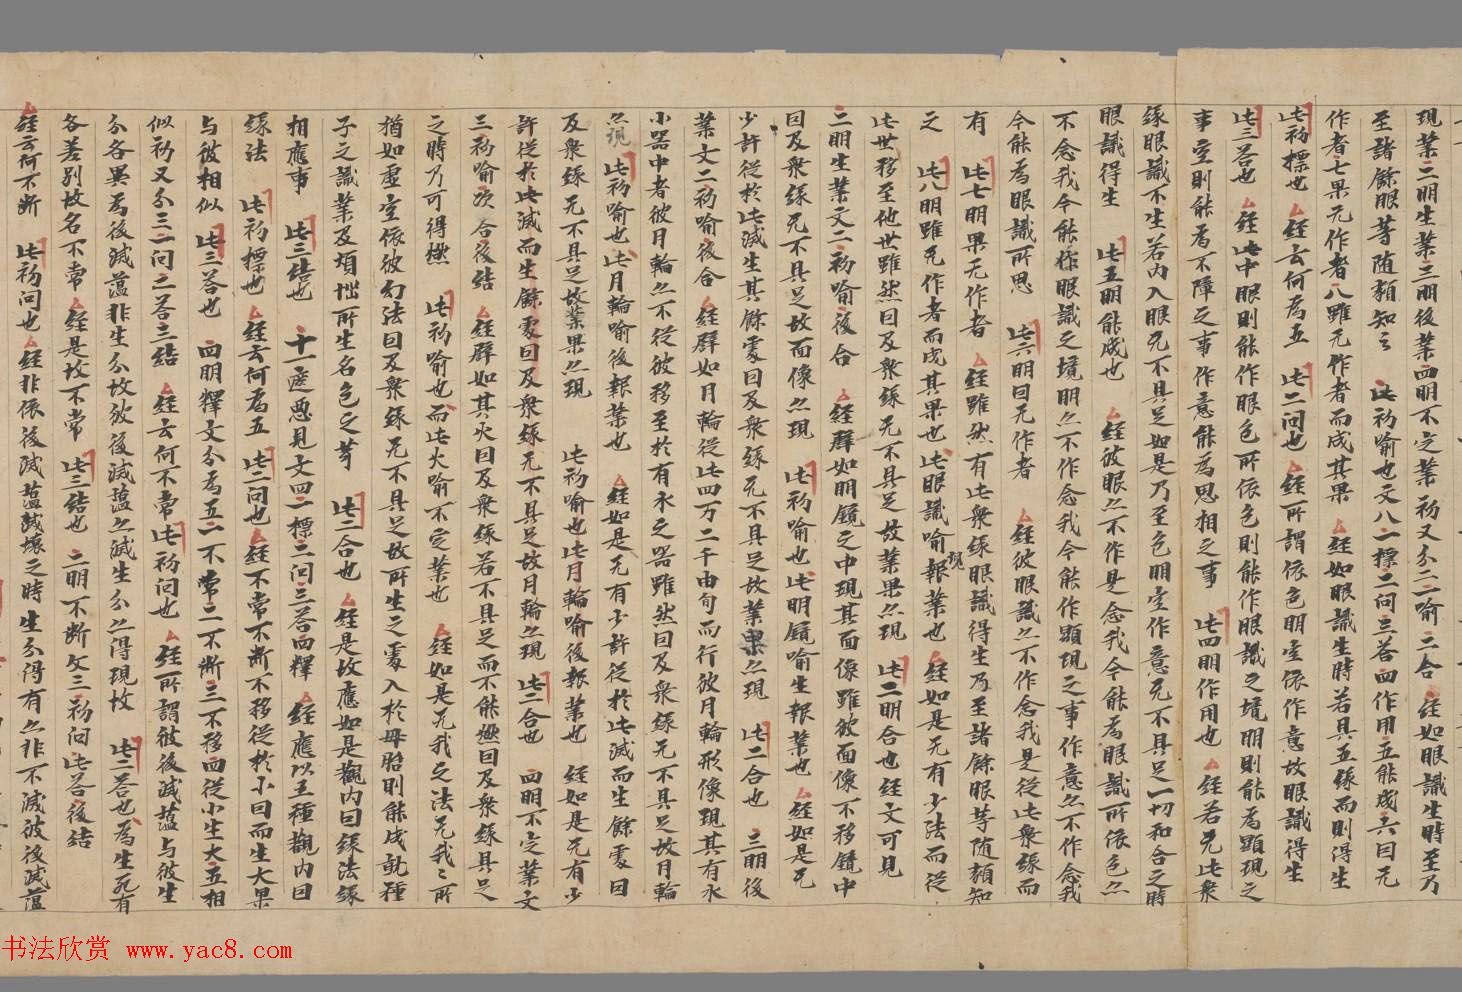 現業二明生業三明後業四明不定業初又分二二喻二合經如眼識生時至乃
至諸餘眼等随類知之 此初喻也文八一標二問三答四作用五能成六曰无
作者七果无作者八雖无作者而成其果 經如眼識生時若具五緣而則得生
此初標也 經云何為五 此二問也 經所謂依色明空依作意故眼識得生
此三答也 經此中眼則能作眼色所依色則能作眼識之境明則能為顯現之
事空則能為不障之事作意能為思相之事 此四明作用也 經若无此衆
緣眼識不生若内入眼无不具足如是乃至色明空作意无不具足一切和合之時
眼識得生 此五明能成也 經彼眼亦不作是念我今能為眼識所依色亦
不念我今能作眼識之境明亦不作念我今能作顯現之事作意亦不作念我
今能為眼識所思 此六明曰无作者 經彼眼識亦不作念我是從此衆緣而
有 此七明果无作者 經雖然有此衆緣眼識得生乃至諸餘眼等随類知
之 此八明雖无作者而成其果也此眼識喻報業也 經如是无有少法而從
此世移至他世雖然因及衆緣无不具足故業果亦現 此二明合也經文可見
二明生業文二初喻後合 經群如明鏡之中現其面像雖彼面像不移鏡中
因及衆緣无不具足故而像亦現 此初喻也此明鏡喻生報業也 經如是无
少許從於此滅生其餘處因及衆緣无不具足故業果亦現 此二合也 三明後
業文二初喻後合 經群如月輪從此四万二千由旬而行彼月輪形像現其有水
小器中者彼月輪亦不從彼移至於有水之器雖然因及衆緣无不具足故月輪
亦現 此初喻也此月輪喻後報業也 經如是无有少許從於此滅而生餘處因
及衆緣无不具足故業果亦現 此初喻也此月輪喻後報業也 經如是无有少
許從於此滅而生餘處因及衆緣无不具足故月輪亦現 此二合也 四明不定業文
三初喻次合後結 經群如其火因及衆緣若不具足而不能燃因及衆緣具足
之時乃可得燃 此初喻也而此火喻不定業也 經如是无我之法无我々所
猶如虚空依彼幻法因及衆緣无不具足故所生之處入於母胎則能成就種
子之識業及煩惱所生名色之芽 此二合也 經是故應如是觀内因緣法緣
相應事 此三結也 十一遮惡見文四一標二問三答四釋 經應以五種觀内因
緣法 此初標也 經云何為五 此二問也經不常不斷不移從於小因而生大果
与彼相似 此三答也 四明釋文分為五一不常二不斷三不移四從小生大五相
似初又分三一問二答三結 經云何不常此初问也 經所謂彼後滅蘊与彼生
分各異為後滅蘊非生分故彼後滅蘊亦滅生分亦得現故 此二答也為生死有
各差别故名不常 經是故不常 此三結也 二明不斷文三初问此答後結
經云何不斷 此初问也 經非依後滅蘊滅壞之時生分得有亦非不滅彼後滅蘊
书法欣赏 www.yac8.com